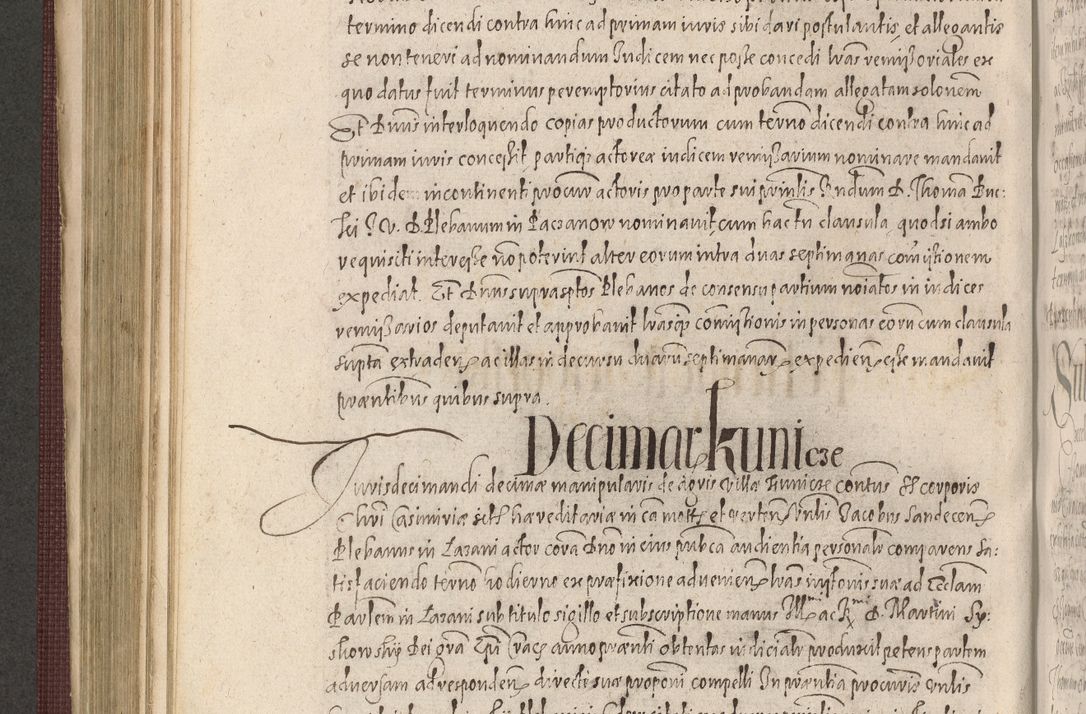 termino dicendi contra hinc ad primam iuris sibi dari postulantis, et allegantis
se non teneri ad nominandum Iudicem nec posse concedi lras remissoriales ex
quo datus fuit terminus peremptorius citato ad probandam allegatam solonem
Et Dnus interloquendo copias productorum cum terno dicendi contra hinc ad
primam iuris concessit partiq; actoreae iudicem remissarium nominare mandavit
et ibidem incontinenti procur actoris pro parte sui prinlis Vndum D. Thomam Buc:
ki I. V. D. Plebanum in Paczanow nominavit cum hac tn clausula, quod si ambo
requisiti interesse no poterint alter eorum intra duas septimanas comissionem
expediat. Et Dnus suprascptos Plebanos de consensu partium noiatos in iudices
remissarios deputavit et approbavit lrasq; comissionis in personas eoru cum clausula
supta extraden ac illas in decursu duaru septimanar expedien esse mandavit
praentibus quibus supra.
Decimar Kunicze
Iuris decimandi decimae manipularis de agris villae Kunicze contus et corporis
Chri Casimiriae sitae haereditaria in ca mota et verten Vnlis Iacobus Sandecen
Plebanus in Lazani actor cora Dno in eius pubca audientia personalr comparens Sa:
tisfaciendo terno hodierno ex praefixione advenien lras inssionis suae ad Ecclam
Parlem in Lazani sub titulo sigillo et subscriptione manus Illmi ac Rmi D. Martini Sy:
skowsky Dei gra Epi Crac anno praenti obtentas iudicialr produxit petens partem
adversam ad responden directe suae proponi compelli In praentia procuris Vnlis